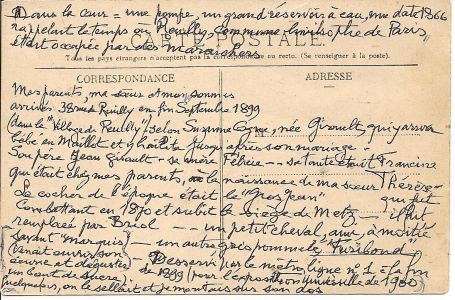 Dans la cour = une pompe, un grand réservoir à eau, une date 1866
rappelant le temps où Reuilly, commune limitrophe de Paris,
était occupée par des Maraîchers
CARTE POSTALE
Tous les pays étrangers n'acceptent pas la correspondance au recto. (Se renseigner à la poste).
CORRESPONDANCE
ADRESSE
Mes parents, ma sœur et moi sommes
arrivés 38 rue Reuilly en fin Septembre 1899
(dans le "Village de Reuilly") selon Suzanne née Girault, qui y arriva
bébé en Maillot et y habita jusqu'après son mariage -
Son père Jean Girault - sa mère Félicie - sa tante était Francine
qui était chez mes parents, à la naissance de ma sœur Thérèse -
Le cocher de l'époque était le "Gros Jean" qui fut
Combattant en 1870 et subit le siège de Metz - il fut
remplacé par - un petit cheval, aux à moitié
savant "Marquis" - un autre gris pommelé "Furibond"
(venait ouvrir son
œuvre et déguster
un Sucre,
Desservi par le métro ligne n° 1 à la fin
de 1899 (pour l'exposition universelle de 1900)
quelquefois, on le sellait et je montais sur son dos